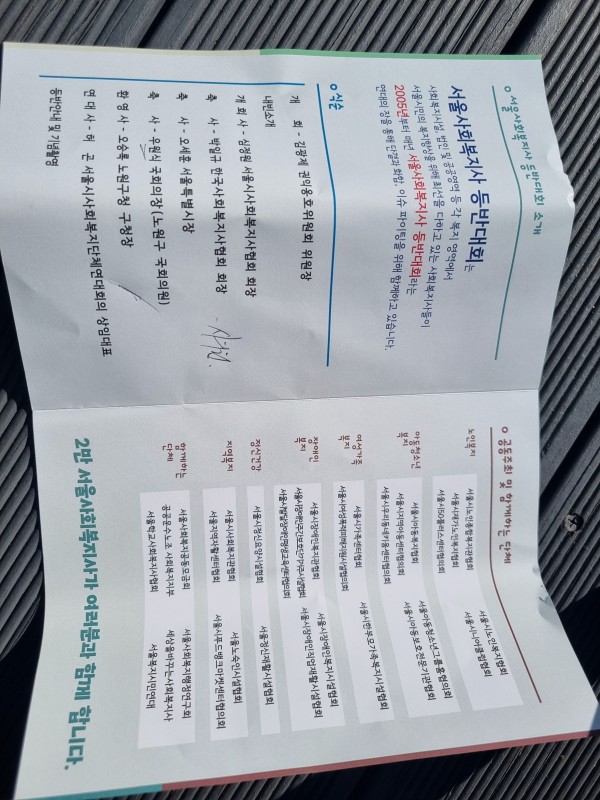 서울사회복지사 등반대회 소개
서울사회복지사 등반대회는
사회복지시설, 법인 및 공공영역 등 각 복지 영역에서
서울시민의 복지향상을 위해 최선을 다하고 있는 사회복지사들이
2005년부터 매년 서울사회복지사 등반대회라는
연대의 장을 통해 단결과 화합, 이슈 파이팅을 위해 함께하고 있습니다.
식순
개 회 - 김광제 권익옹호위원회 위원장
내빈소개
개 회 사 - 심정원 서울시사회복지사협회 회장
축 사 - 박일규 한국사회복지사협회 회장
축 사 - 오세훈 서울특별시장
축 사 - 우원식 국회의장(노원구 국회의원)
환 영 사 - 오승록 노원구청 구청장
연 대 사 - 허 곤 서울시사회복지단체연대회의 상임대표
등반안내 및 기념촬영
공동주최 및 함께하는 단체
노인복지
서울시노인종합복지관협회
서울시노인복지협회
서울시재가노인복지협회
서울시니어클럽협회
서울시50플러스센터협의회
아동청소년
복지
서울시아동복지협회
서울아동청소년그룹홈협의회
서울시지역아동센터협의회
서울시아동보호전문기관협회
서울시우리동네키움센터협의회
여성가족
복지
서울시가족센터협회
서울시한부모가족복지시설협회
서울시여성폭력피해지원시설협의회
장애인
복지
서울시장애인복지관협회
서울시장애인복지시설협회
서울시장애인주간보호·단기거주시설협회
서울시장애인직업재활시설협회
서울시발달장애인평생교육센터협의회
정신건강
서울시정신요양시설협회
서울정신재활시설협회
지역복지
서울시사회복지관협회
서울노숙인시설협회
서울지역자활센터협회
서울시푸드뱅크마켓센터협의회
함께하는
단체
서울사회복지공동모금회
서울사회복지행정연구회
공공운수노조 사회복지지부
세상을바꾸는사회복지사
서울학교사회복지사협회
서울복지시민연대
2만 서울사회복지사가 여러분과 함께 합니다.